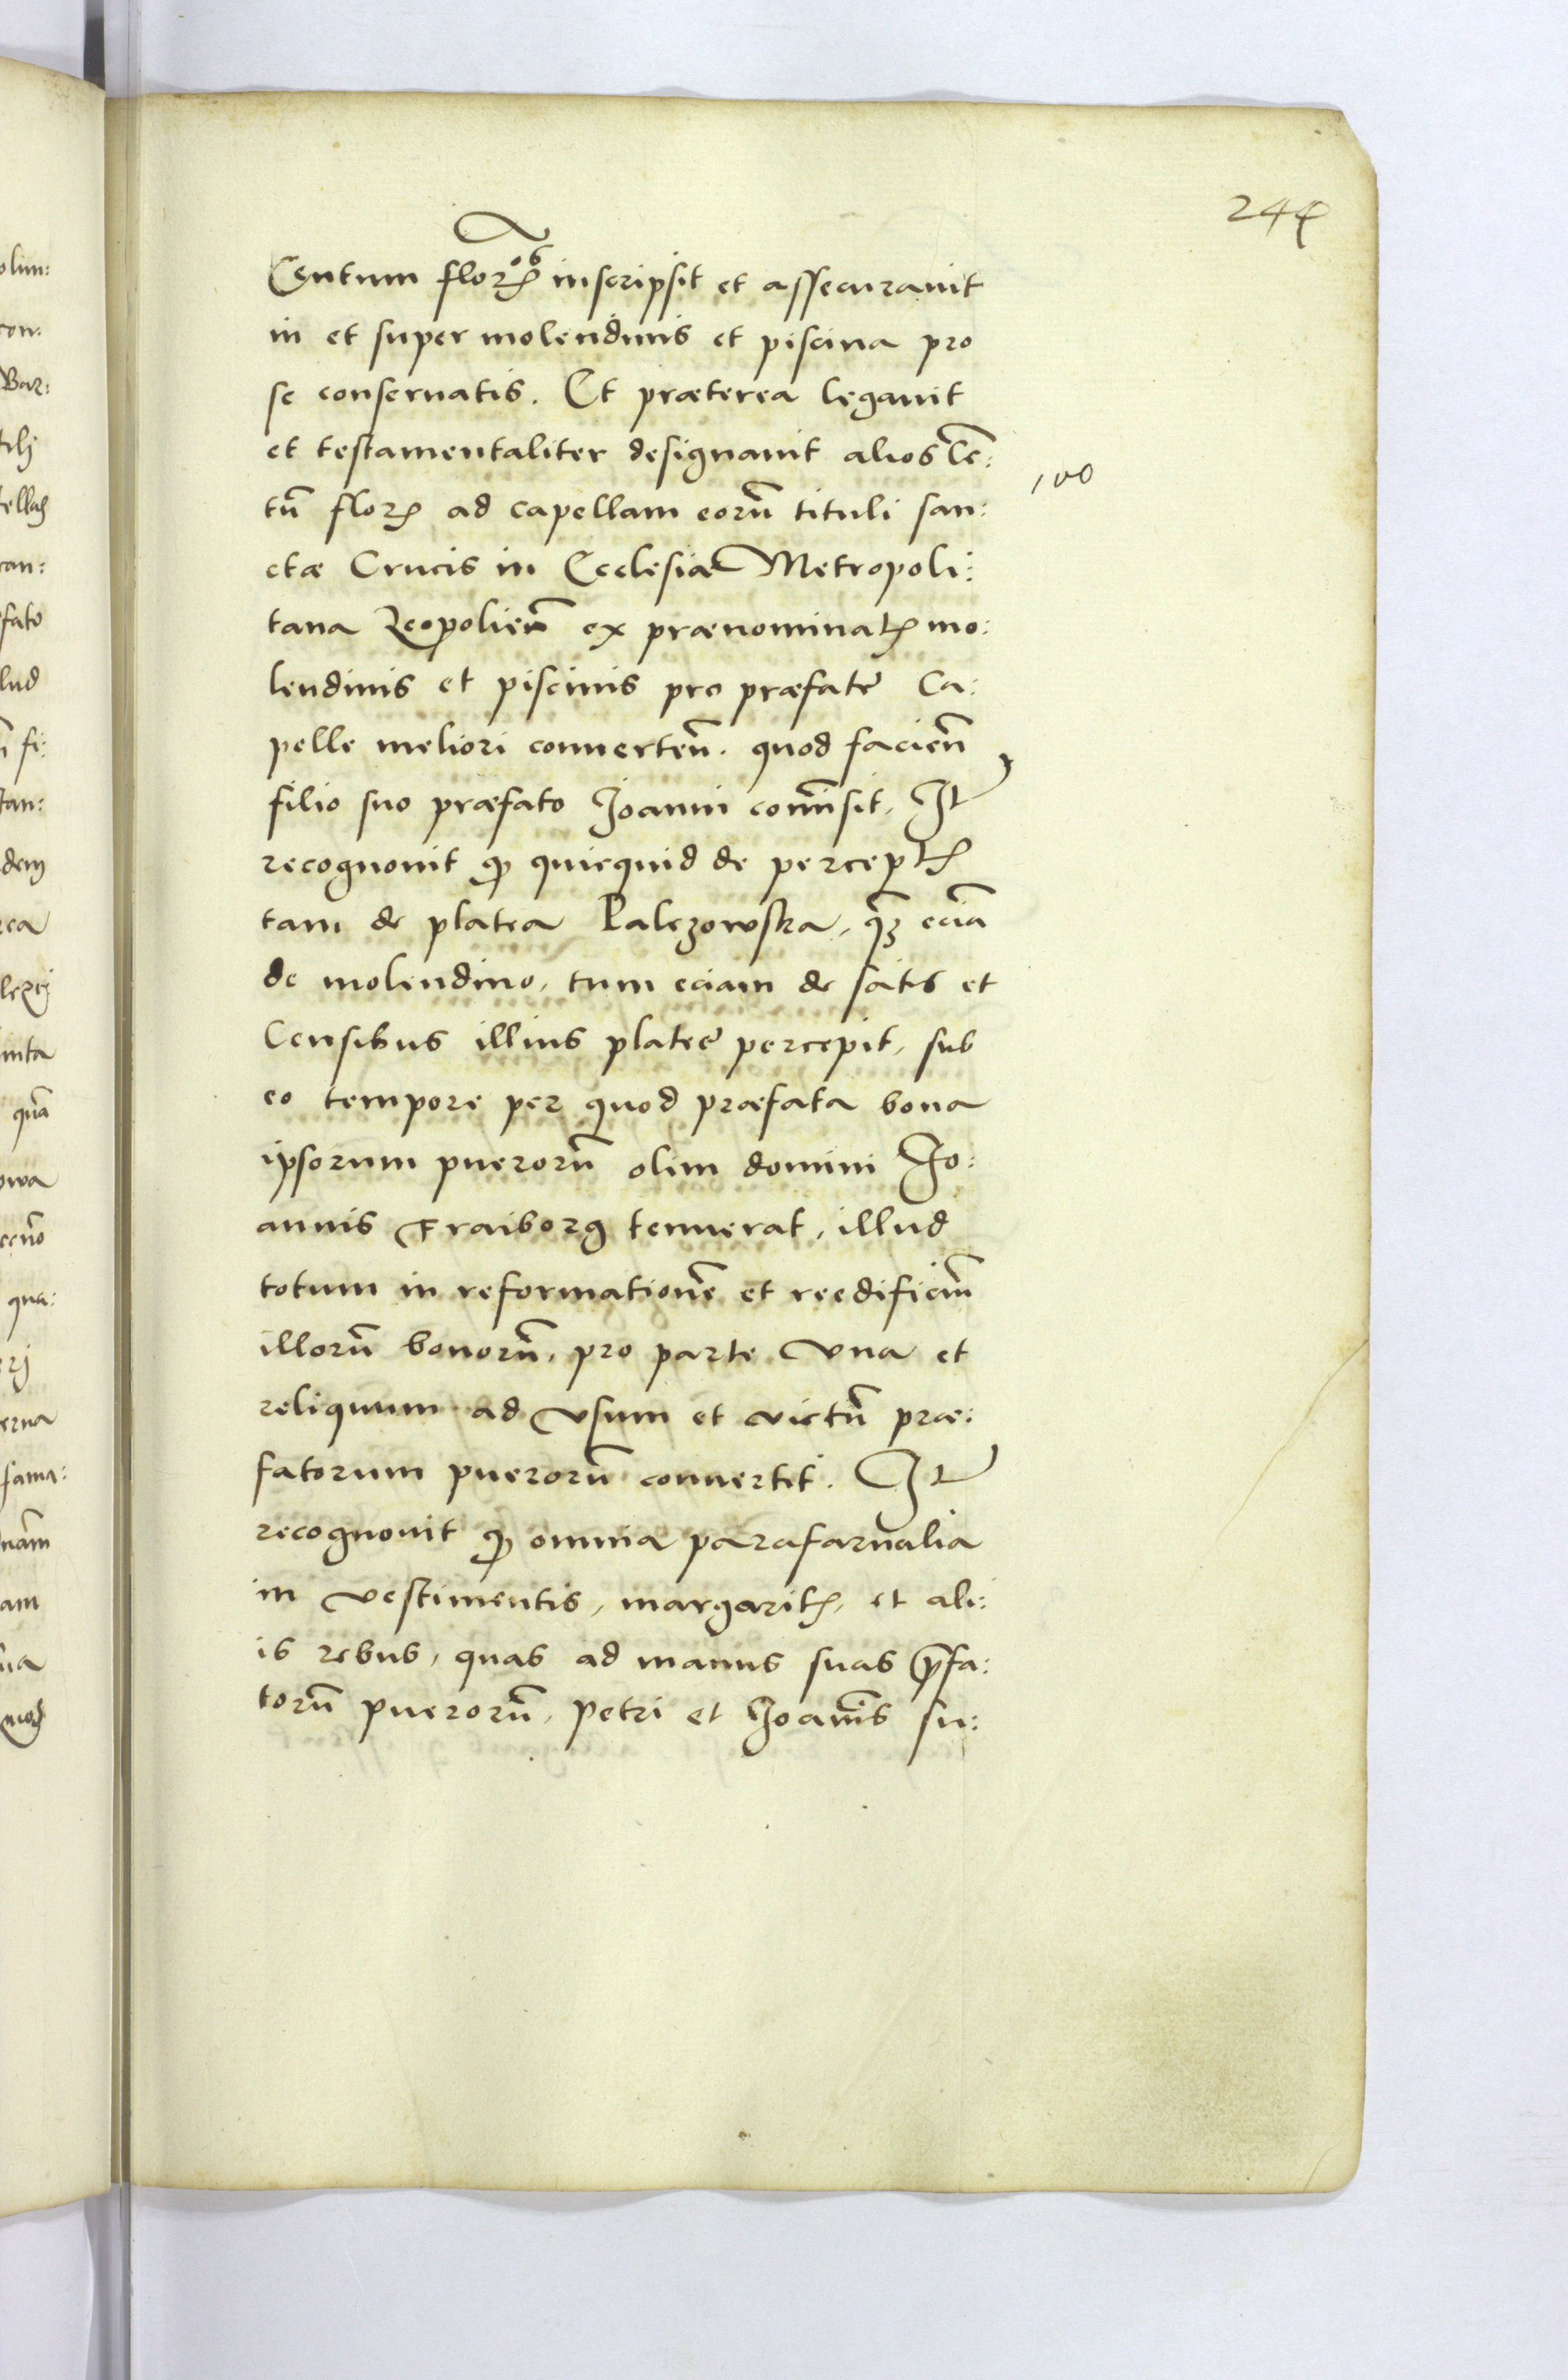 244
Centum florꝭ inscripsit et assecurauit
in et super molendinis et piscina pro
se conseruatis. Et præterea legauit
et testamentaliter designauit alios Cē:
100
tū florꝭ ad capellam eorū tituli san:
ctæ Crucis in Ecclesia Metropoli:
tana Leopolieñ ex prænominatꝭ mo:
lendinis et piscinis pro præfatę Ca:
pelle meliori conuerteñ. quod facieñ
filio suo præfato Joanni com̄isit. It
recognouit ꝙ quicquid de perceptꝭ
tam de platea Kalezowska, q̄ꝫ eciā
de molendino, tum eciam de satis et
Censibus illius plateę percepit, sub
eo tempore per quod præfata bona
ipsorum puerorū olim domini Jo:
annis Fraiborg tenuerat, illud
totum in reformationē et reedificiū
illorū bonorū, pro parte vna et
reliquum ad vsum et victū præ:
fatorum puerorū conuertit. It
recognouit ꝙ omnia parafarnalia
in vestimentis, margaritꝭ, et ali:
is rebus, quas ad manus suas p̄fa:
torū puerorū, Petri et Joan̄is su: